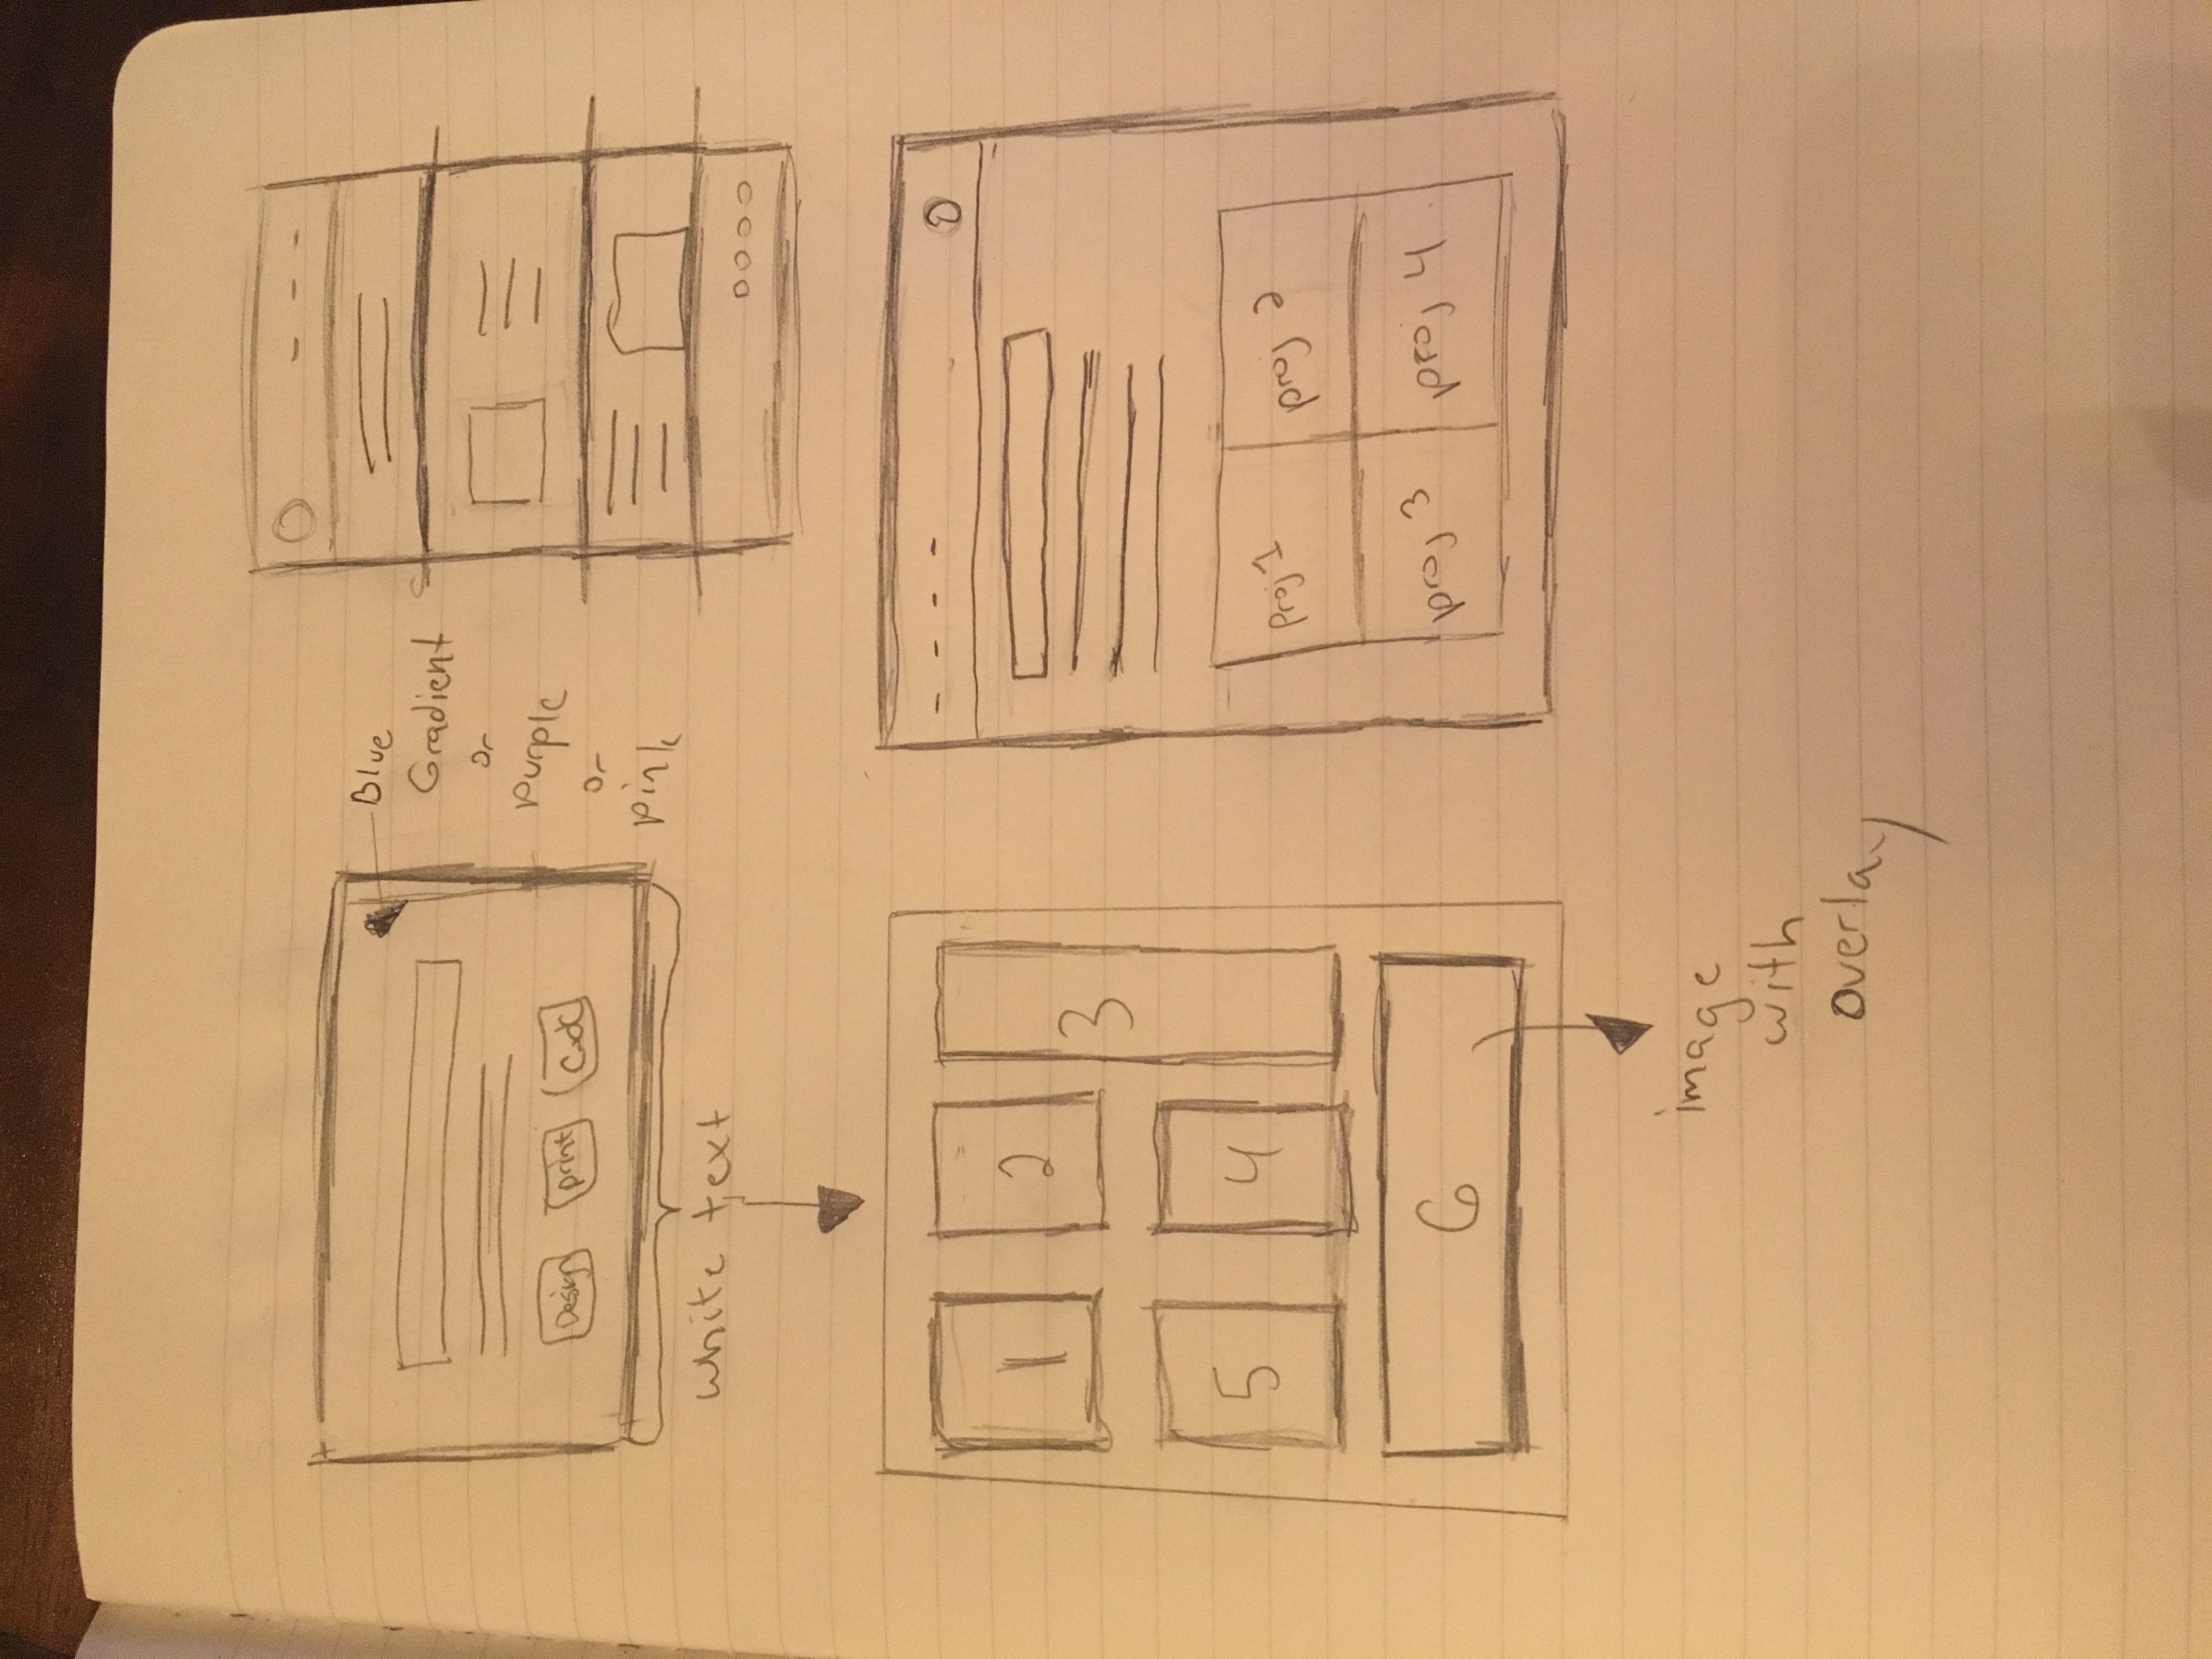 Design
print
Code
Blue
Gradient
or
purple
or
pink
white text
1
2
3
5
4
6
image
with
overlay
proj 1
proj 2
proj 3
proj 4